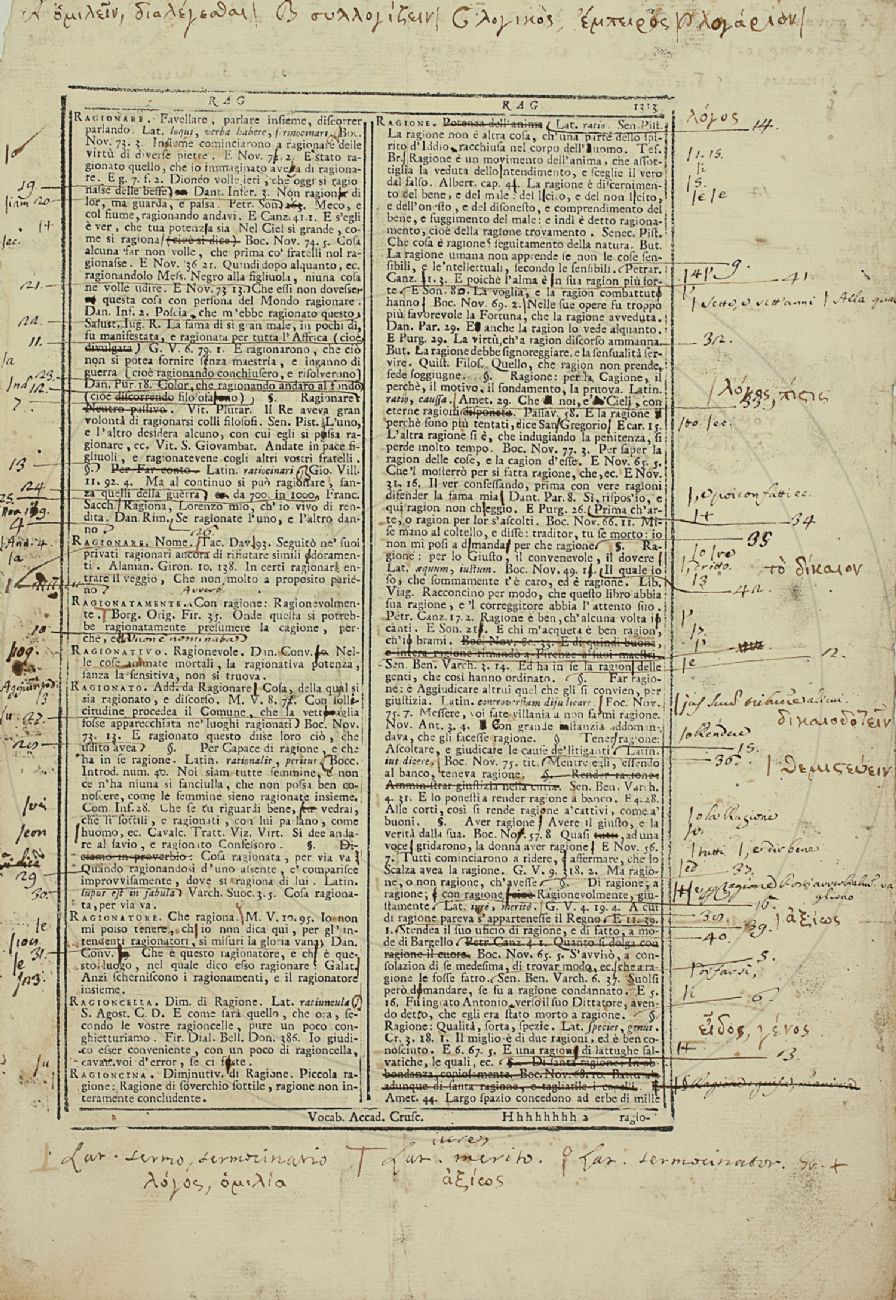 A ὁμιλεῖν, διαλέγεσθαι | B συλλογίζειν | C λογικὸς, ἔμπειρος | D λογάριον |
RAG RAG 1313
RAGIONARE. Favellare, parlare insieme, discorrer
parlando. Lat. loqui, verba habere, sermocinari. Boc.
Nov. 73. 3. Insieme cominciarono a ragionare delle
virtù di diverse pietre. E Nov. 71. 2. E stato ra-
gionato quello, che io immaginato aveva di ragiona-
re. E g. 7. f. 2. Dioneo volle jeri, che oggi si ragio
nasse delle beffe. Dant. Infer. 3. Non ragionar di
lor, ma guarda, e passa. Petr. Son. Meco, e
col fiume, ragionando andavi. E Canz. 41. 1. E s'egli
è ver, che tua potenzia sia Nel Ciel sì grande, co-
me si ragiona (cioè si dice) Boc. Nov. 74. 5. Cosa
alcuna far non volle, che prima co' fratelli nol ra-
gionasse. E Nov. 36 21. Quindi dopo alquanto, ec.
ragionandolo Mess. Negro alla figliuola, niuna cosa
ne volle udire. E Nov. 73 13. Che essi non dovesser
questa cosa con persona del Mondo ragionare.
Dan. Inf. 2. Poscia, che m'ebbe ragionato questo.
Salust. Jug. R. La fama di sì gran male, in pochi dì,
fu manifestata, e ragionata per tutta l'Affrica (cioè
divulgata) G. V. 6. 79. 1. E ragionarono, che ciò
non si potea fornire senza maestria, e inganno di
guerra (cioè ragionando conchiusero, e risolverono)
Dan. Pur. 18. Color, che ragionando andaro al fondo
(cioè discorrendo filosofarono) §. Ragionare
Neutro passivo. Vit. Plutar. Il Re aveva gran
volontà di ragionarsi colli filosofi. Sen. Pist. L'uno,
e l'altro desidera alcuno, con cui egli si possa ra-
gionare, ec. Vit. S. Giovambat. Andate in pace fi-
gliuoli, e ragionatevene cogli altri vostri fratelli.
§. Per Far conto. Latin. ratiocinari. Gio. Vill.
11. 92. 4. Ma al continuo si può ragionare, san-
za quelli della guerra da 700 in 1000. Franc.
Sacch. Ragiona, Lorenzo mio, ch'io vivo di ren-
dita. Dan. Rim. Se ragionate l'uno, e l'altro dan-
no
RAGIONARE. Nome. Tac. Dav. 93. Seguitò ne' suoi
privati ragionari ancora di rifiutare simili adoramen-
ti. Alaman. Giron. 10. 138. In certi ragionari en-
trare il veggio, Che non molto a proposito parié-
no
RAGIONATAMENTE. Avverb. Con ragione: Ragionevolmen-
te. Borg. Orig. Fir. 35. Onde questa si potreb-
be ragionatamente presumere la cagione, per-
chè, ec. Uno n'è nominato
RAGIONATIVO. Ragionevole. Din. Conv. Nel-
le cose animate mortali, la ragionativa potenza,
sanza la sensitiva, non si truova.
RAGIONATO. Add. da Ragionare. Cosa, della qual si
sia ragionato, e discorso. M. V. 8. 7. Con solli-
citudine procedea il Comune, che la vettovaglia
fosse apparecchiata ne' luoghi ragionati. Boc. Nov.
73. 13. E ragionato questo disse loro ciò, che
udito avea. §. Per Capace di ragione, e che
ha in se ragione. Latin. rationalis, peritus. Bocc.
Introd. num. 40. Noi siam tutte femmine, e non
ce n'ha niuna sì fanciulla, che non possa ben co-
noscere, come le femmine sieno ragionate insieme.
Com. Inf. 28. Che se tu riguardi bene, vedrai,
che li sottili, e ragionati, con lui parlano, come
huomo, ec. Cavalc. Tratt. Viz. Virt. Si dee anda-
re al savio, e ragionato Confessoro. §. Di-
ciamo in proverbio: Cosa ragionata, per via va
Quando ragionandosi d'uno assente, e' comparisce
improvvisamente, dove si ragiona di lui. Latin.
lupus est in fabula. Varch. Suoc. 3. 5. Cosa ragiona-
ta, per via va.
RAGIONATORE. Che ragiona. M. V. 10. 95. Io non
mi posso tenere, ch'io non dica qui, per gl'in-
tendenti ragionatori, si misuri la gloria vana. Dan.
Conv. Che è questo ragionatore, e ch' è que-
sto luogo, nel quale dico esso ragionare: Galat.
Anzi scherniscono i ragionamenti, e il ragionatore
insieme.
RAGIONCELLA. Dim. di Ragione. Lat. ratiuncula
S. Agost. C. D. E come sarà quello, che ora, se-
condo le vostre ragioncelle, pure un poco con-
ghietturiamo. Fir. Dial. Bell. Don. 386. Io giudi-
co esser conveniente, con un poco di ragioncella,
cavarvi d'error, se ci siate.
RAGIONCINA. Diminutiv. di Ragione. Piccola ra-
gione: Ragione di soverchio sottile, ragione non in-
teramente concludente.
RAGIONE. Potenza dell'anima. Lat. ratio. Sen. Pist.
La ragione non è altra cosa, ch'una parte dello spi-
rito d'Iddio, racchiusa nel corpo dell'uomo. Tes.
Br. Ragione è un movimento dell'anima, che assot-
tiglia la veduta dello intendimento, e sceglie il vero
dal falso. Albert. cap. 44. La ragione è discernimen-
to del bene, e del male: del licito, e del non licito,
e dell'onesto, e del disonesto, e comprendimento del
bene, e fuggimento del male: e indi è detto ragiona-
mento, cioè della ragione trovamento. Senec. Pist.
Che cosa è ragione? seguitamento della natura. But.
La ragione umana non apprende se non le cose sen-
sibili, e le 'ntellettuali, secondo le sensibili. Petrar.
Canz. 11. 3. E poichè l'alma è in sua ragion più for-
te. E Son. 80. La voglia, e la ragion combattuto
hanno. Boc. Nov. 69. 2. Nelle sue opere fu troppo
più favorevole la Fortuna, che la ragione avveduta.
Dan. Par. 29. E anche la ragion lo vede alquanto.
E Purg. 29. La virtù, ch'a ragion discorso ammanna.
But. La ragione debbe signoreggiare, e la sensualità ser-
vire. Quist. Filos. Quello, che ragion non prende,
fede soggiugne. §. Ragione: per la Cagione, il
perchè, il motivo, il fondamento, la pruova. Latin.
ratio, caussa. Amet. 29. Che noi, e' Cieli, con
eterne ragioni disponeta. Passav. 58. E la ragione
perchè sono più tentati, dice San Gregorio. E car. 15.
L'altra ragione si è, che indugiando la penitenza, si
perde molto tempo. Boc. Nov. 77. 3. Per saper la
ragion delle cose, e la cagion d'esse. E Nov. 65. 5.
Che'l mosterrò per sì fatta ragione, che, ec. E Nov.
31. 16. Il ver confessando, prima con vere ragioni
difender la fama mia. Dant. Par. 8. Sì, rispos'io, e
qui ragion non chieggio. E Purg. 26. Prima ch'ar-
te, o ragion per lor s'ascolti. Boc. Nov. 66. 11. Mi-
se mano al coltello, e disse: traditor, tu se morto: io
non mi posi a dimandar per che ragione. §. Ra-
gione: per lo Giusto, il convenevole, il dovere
Lat. æquum, iustum. Boc. Nov. 49. 14. Il quale io
so, che sommamente t'è caro, ed è ragione. Lib.
Viag. Racconcino per modo, che questo libro abbia
sua ragione, e'l correggitore abbia l'attento suo.
Petr. Canz. 17. 2. Ragione è ben, ch'alcuna volta io
canti. E Son. 21. E chi m'acqueta è ben ragion,
ch'io brami. Boc. Nov. 80. 33. E di quindi buone,
e intera ragione rimando a Firenze a' suoi maestri.
Sen. Ben. Varch. 3. 14. Ed ha in se la ragion delle
genti, che così hanno ordinato. §. Far ragio-
ne: è Aggiudicare altrui quel che gli si convien, per
giustizia. Latin. controversiam dijudicare. Boc. Nov.
75. 7. Messere, voi fate villania a non farmi ragione.
Nov. Ant. 3. 4. Con grande instanzia addoman-
dava, che gli facesse ragione. Tener ragione:
Ascoltare, e giudicare le cause de' litiganti. Latin.
ius dicere. Boc. Nov. 75. tit. Mentre egli, essendo
al banco, teneva ragione. §. Render ragione:
Amministrar giustizia nella curia. Sen. Ben. Varch.
4. 31. E lo ponesti a render ragione a banco. E 4. 28.
Alle corti, così si rende ragione a' cattivi, come a'
buoni. §. Aver ragione. Avere il giusto, e la
verità dalla sua. Boc. Nov. 57. 8 Quasi tutti, ad una
voce gridarono, la donna aver ragione. E Nov. 56.
7. Tutti cominciarono a ridere, affermare, che lo
Scalza avea la ragion. G. V. 9. 318. 2. Ma ragio-
ne, o non ragione, ch'avesse §. Di ragione; a
ragione; con ragione cioè Ragionevolmente, giu-
stamente. Lat. iure, merito. G. V. 4. 19. 4. A cui
di ragione pareva s'appartenesse il Regno. E 11. 39.
1. Stendea il suo uficio di ragione, e di fatto, a mo-
do di Bargello. Petr. Canz. 4 1. Quanto si dolga con
ragione il cuore. Boc. Nov. 65. 5. S'avvisò, a con-
solazion di se medesima, di trovar modo, ec. sche a ra-
gione le fosse fatto. Sen. Ben. Varch. 6. 37. Suolsi
però domandare, se fu a ragione condannato. E 5.
16. Fu ingrato Antonio, verso il suo Dittatore, aven-
do detto, che egli era stato morto a ragione. §
Ragione: Qualità, sorta, spezie. Lat. species, genus.
Cr. 3. 18. 1. Il miglio è di due ragioni, ed è ben co-
nosciuto. E 6. 67. 5. E una ragion di lattughe sal-
vatiche, le quali, ec. §. Di santa ragione: In ab-
bondanza, copiosamente. Boc. Nov. 68. 10. Battu-
adunque di santa ragione, e tagliatile i capelli.
Amet. 44. Largo spazio concedono ad erbe di mille
Vocab. Accad. Crusc. Hhhhhhhh 2 ragio-
λόγος
14.
9.
41.
32.
λόγος, πίστις
33.
34
35
τὸ δίκαιον
42.
2.
δικαιοδοτεῖν
Rendere
15.
36.
θεμιστεύειν
o la Ragione
33.
16.
39.
ἀξίως
40.
5.
6.
εἶδος, γένος
13.
19
20
21.
22.
11.
23.
12.
7.
13
24
25.
10
27.
29
30.
31.
iure,
Lat. sermo, sermocinatio Lat. merito. Lat. sermocinator.
λόγος, ὁμιλία ἀξίως